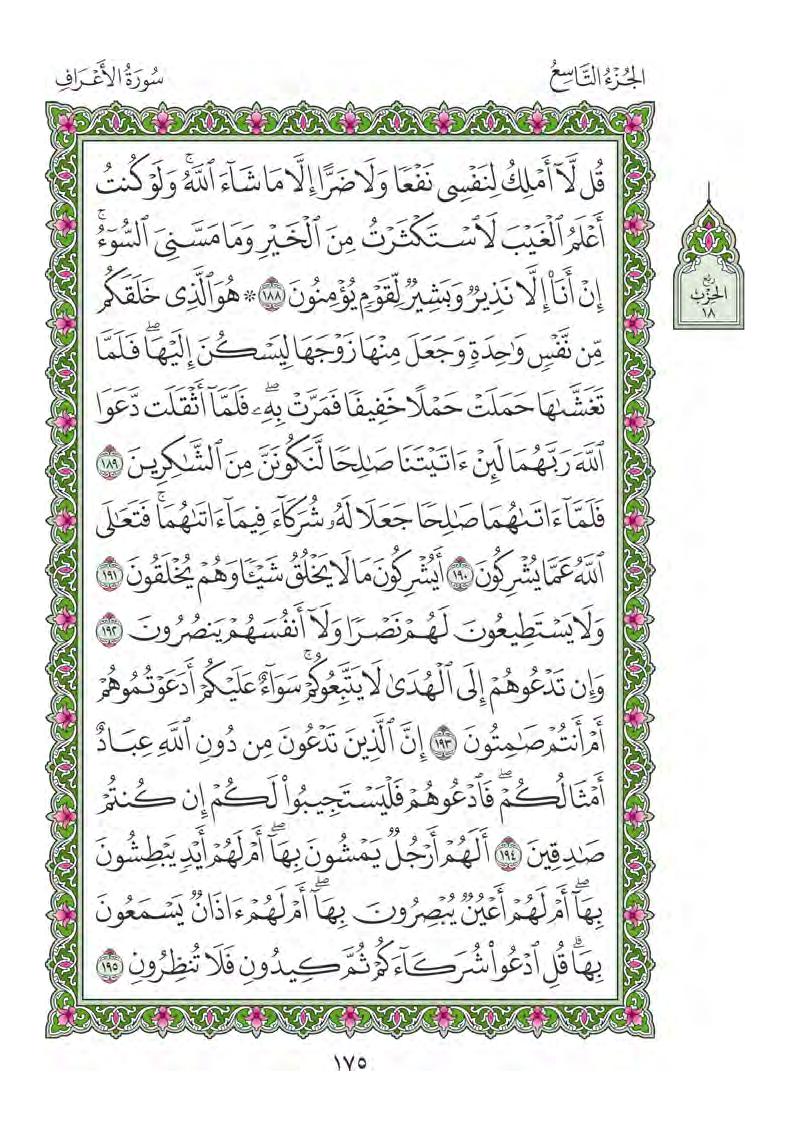 الجُزْءُ التَّاسِعُ
سُورَةُ الأَعْرَافِ
قُل لَّآ أَمْلِكُ لِنَفْسِى نَفْعًا وَلَا ضَرًّا إِلَّا مَا شَآءَ ٱللَّهُۚ وَلَوْ كُنتُ
أَعْلَمُ ٱلْغَيْبَ لَٱسْتَكْثَرْتُ مِنَ ٱلْخَيْرِ وَمَا مَسَّنِىَ ٱلسُّوٓءُۚ
إِنْ أَنَا۠ إِلَّا نَذِيرٌ وَبَشِيرٌ لِّقَوْمٍ يُؤْمِنُونَ ١٨٨ ۞ هُوَ ٱلَّذِى خَلَقَكُم
مِّن نَّفْسٍ وَٰحِدَةٍ وَجَعَلَ مِنْهَا زَوْجَهَا لِيَسْكُنَ إِلَيْهَاۖ فَلَمَّا
تَغَشَّىٰهَا حَمَلَتْ حَمْلًا خَفِيفًا فَمَرَّتْ بِهِۦۖ فَلَمَّآ أَثْقَلَت دَّعَوَا
ٱللَّهَ رَبَّهُمَا لَئِنْ ءَاتَيْتَنَا صَٰلِحًا لَّنَكُونَنَّ مِنَ ٱلشَّٰكِرِينَ ١٨٩
فَلَمَّآ ءَاتَىٰهُمَا صَٰلِحًا جَعَلَا لَهُۥ شُرَكَآءَ فِيمَآ ءَاتَىٰهُمَاۚ فَتَعَٰلَى
ٱللَّهُ عَمَّا يُشْرِكُونَ ١٩٠ أَيُشْرِكُونَ مَا لَا يَخْلُقُ شَيْـًٔا وَهُمْ يُخْلَقُونَ ١٩١
وَلَا يَسْتَطِيعُونَ لَهُمْ نَصْرًا وَلَآ أَنفُسَهُمْ يَنصُرُونَ ١٩٢
وَإِن تَدْعُوهُمْ إِلَى ٱلْهُدَىٰ لَا يَتَّبِعُوكُمْۚ سَوَآءٌ عَلَيْكُمْ أَدَعَوْتُمُوهُمْ
أَمْ أَنتُمْ صَٰمِتُونَ ١٩٣ إِنَّ ٱلَّذِينَ تَدْعُونَ مِن دُونِ ٱللَّهِ عِبَادٌ
أَمْثَالُكُمْۖ فَٱدْعُوهُمْ فَلْيَسْتَجِيبُوا۟ لَكُمْ إِن كُنتُمْ
صَٰدِقِينَ ١٩٤ أَلَهُمْ أَرْجُلٌ يَمْشُونَ بِهَآۖ أَمْ لَهُمْ أَيْدٍ يَبْطِشُونَ
بِهَآۖ أَمْ لَهُمْ أَعْيُنٌ يُبْصِرُونَ بِهَآۖ أَمْ لَهُمْ ءَاذَانٌ يَسْمَعُونَ
بِهَاۗ قُلِ ٱدْعُوا۟ شُرَكَآءَكُمْ ثُمَّ كِيدُونِ فَلَا تُنظِرُونِ ١٩٥
ربع
الحِزْبِ
١٨
١٧٥